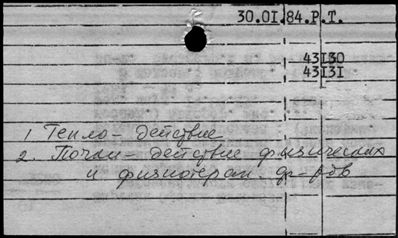 30.01.84.Р.Т.
43130
43131
1 Тепло – действие
2. Почки – действие физических
и физиотерап. ф-ров